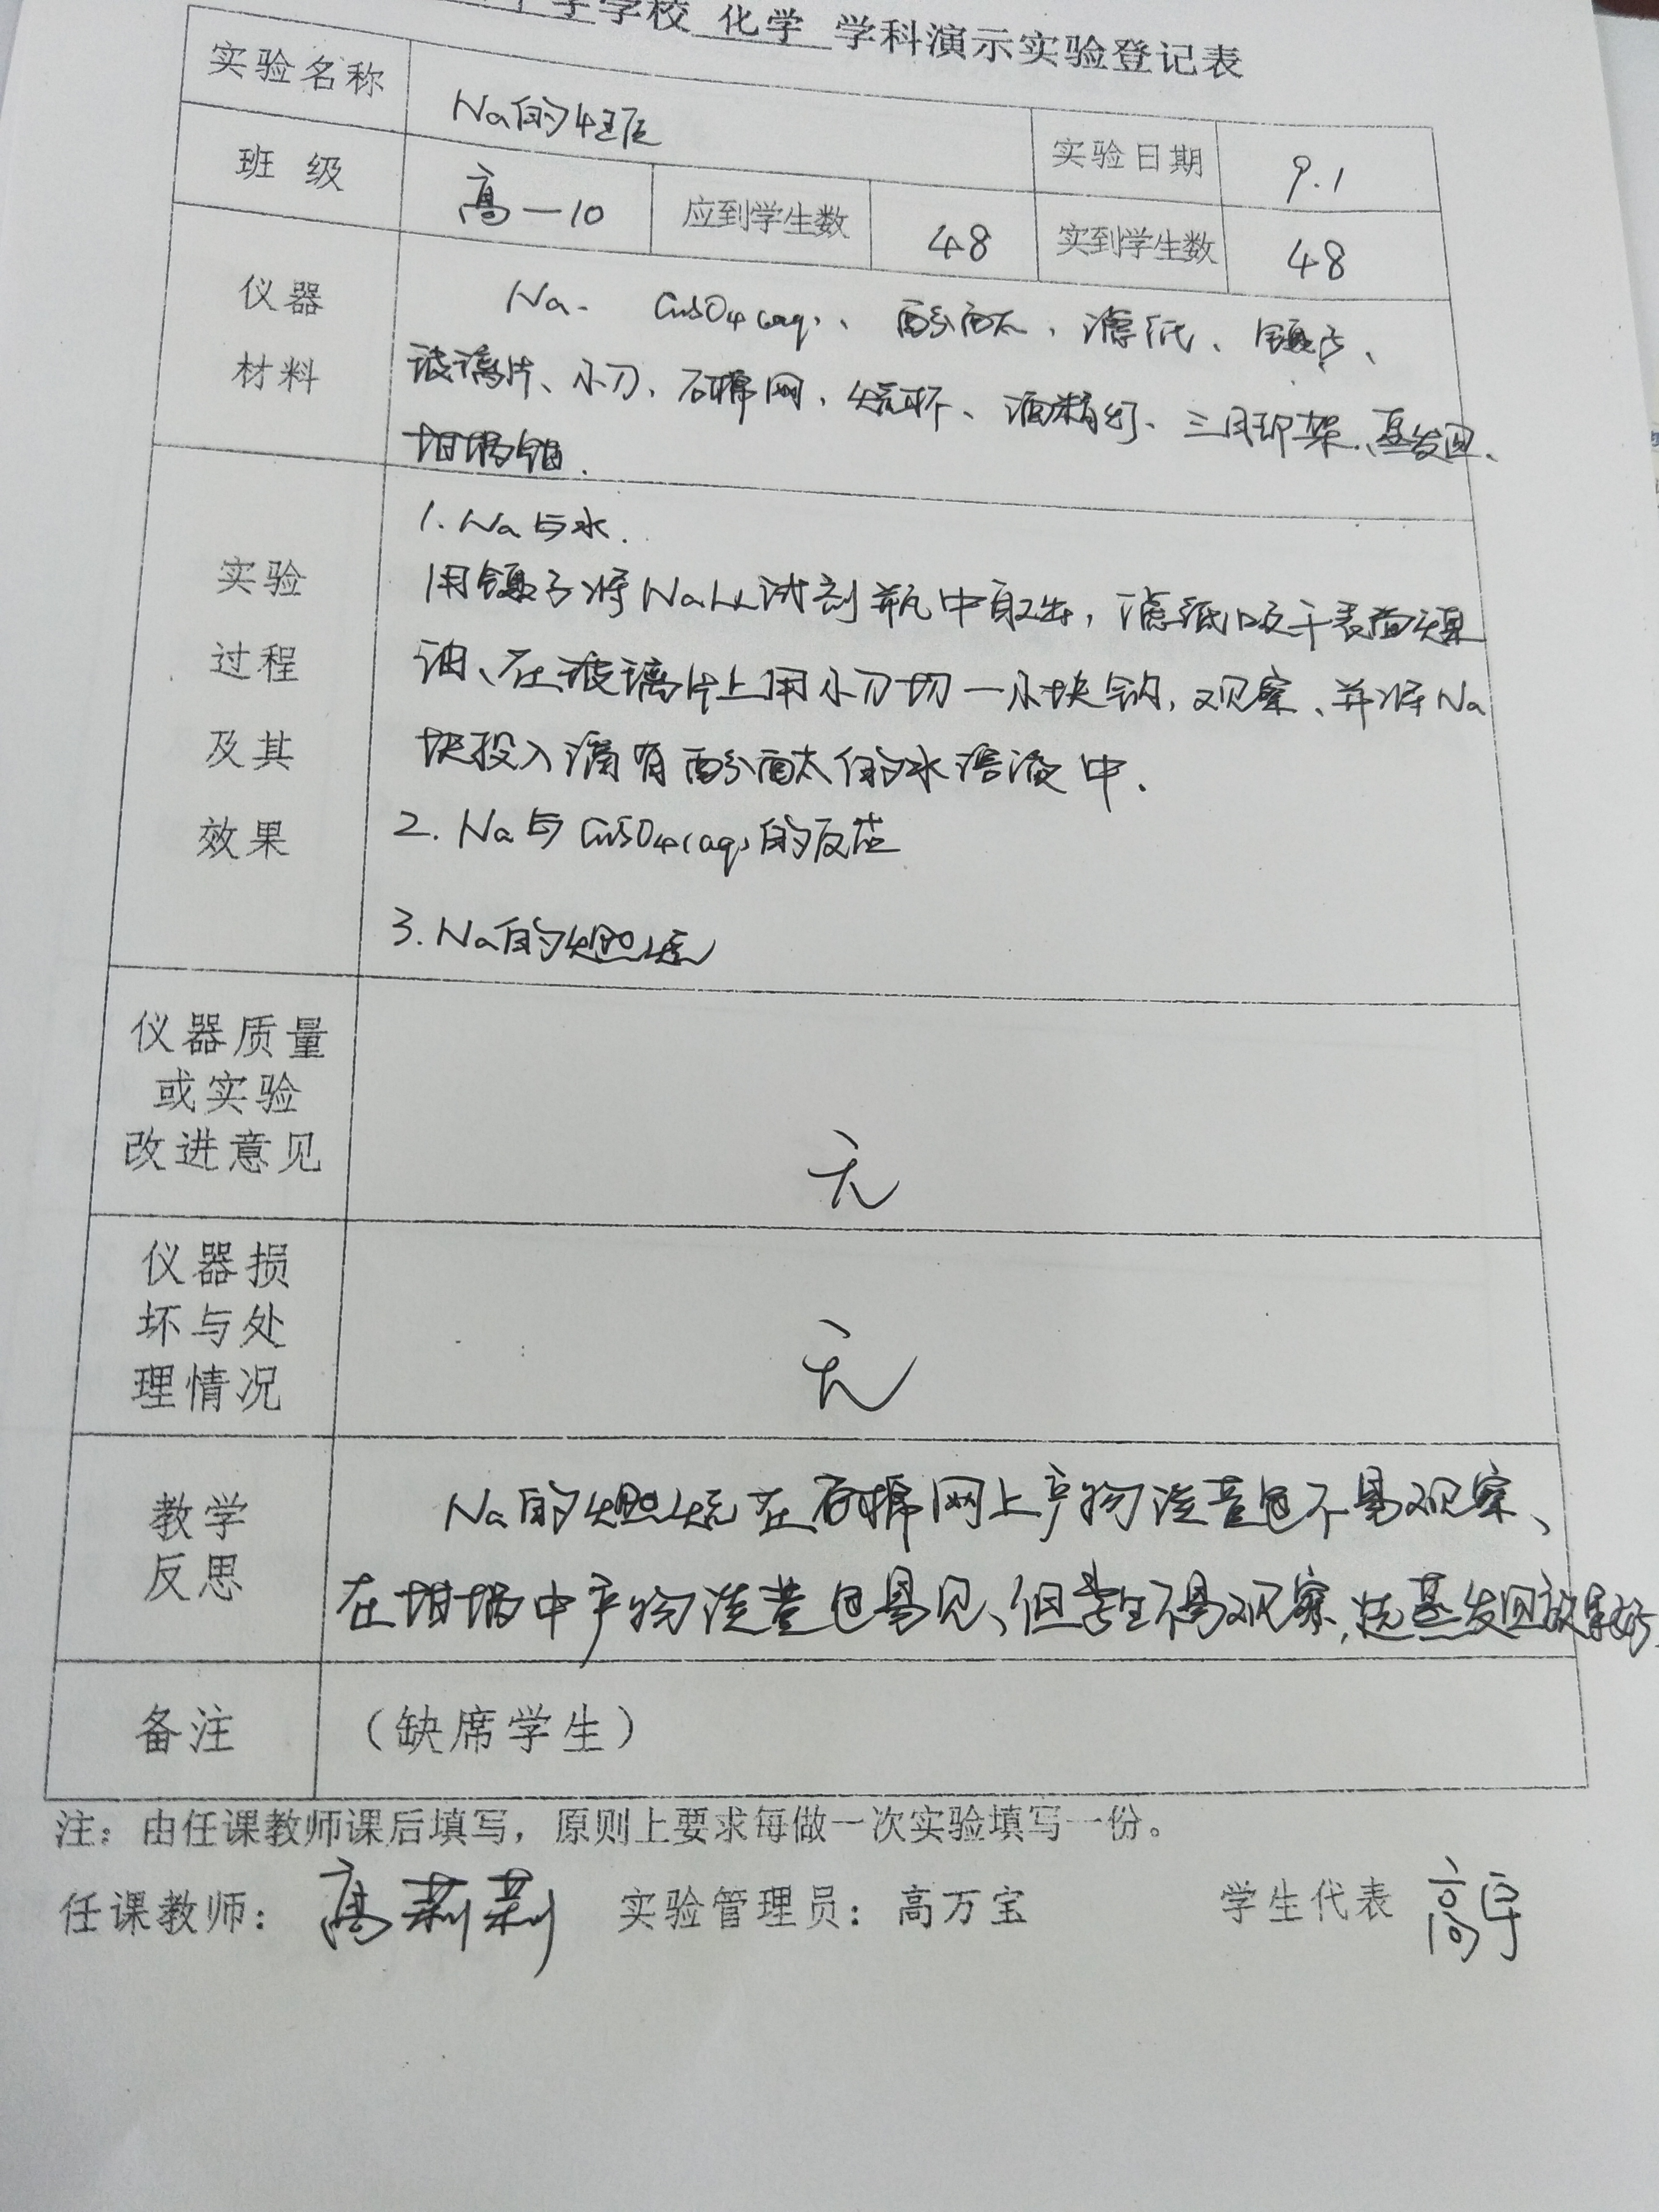 学校 化学 学科演示实验登记表
实验名称 Na的性质 实验日期 9.1
班 级 高一10 应到学生数 48 实到学生数 48
仪器
材料
Na、CuSO4(aq)、酚酞、滤纸、镊子、
玻璃片、小刀、石棉网、烧杯、酒精灯、三脚架、蒸发皿、
坩埚钳.
实验
过程
及其
效果
1. Na与水.
用镊子将Na从试剂瓶中取出,滤纸吸干表面煤
油、在玻璃片上用小刀切一小块钠,观察、并将Na
块投入滴有酚酞的水溶液中.
2. Na与CuSO4(aq)的反应
3. Na的燃烧
仪器质量
或实验
改进意见
无
仪器损
坏与处
理情况
无
教学
反思
Na的燃烧在石棉网上产物淡黄色不易观察、
在坩埚中产物淡黄色易见、但学生不易观察,选蒸发皿效果好
备注 (缺席学生)
注:由任课教师课后填写,原则上要求每做一次实验填写一份。
任课教师: 高莉莉 实验管理员:高万宝 学生代表 高宇